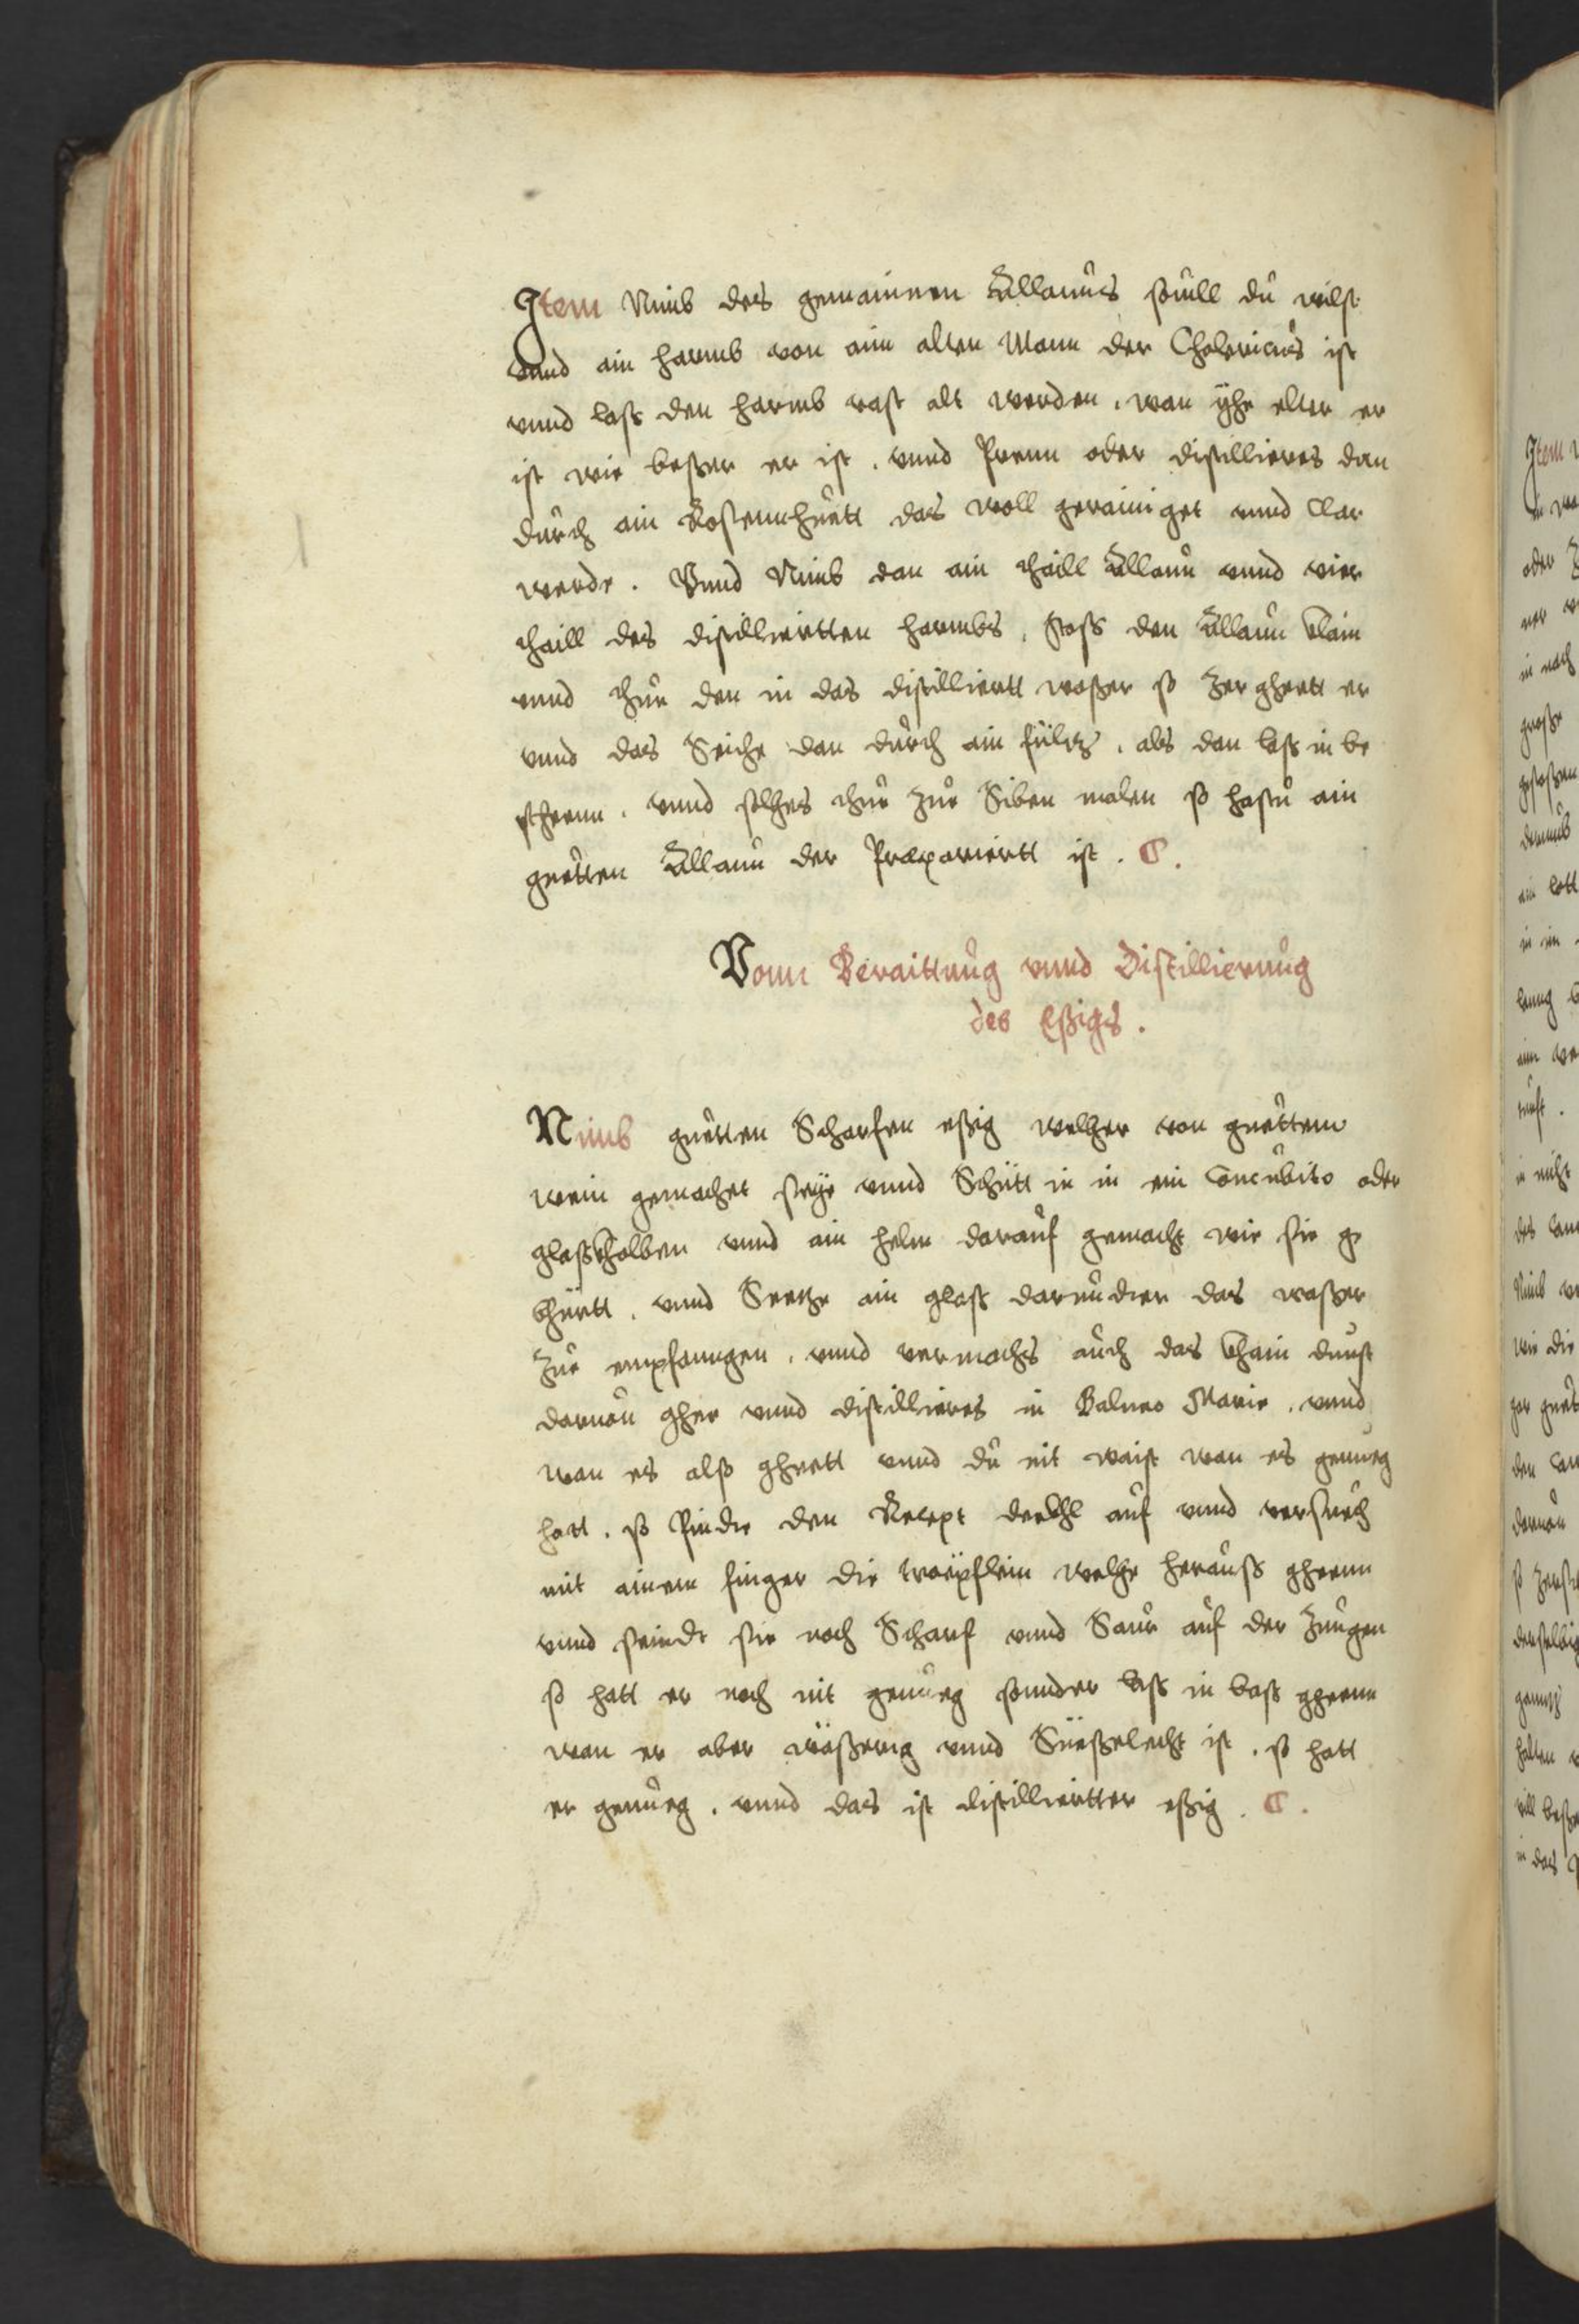 Item Nimb des gemainen Allauns souill du wilst
vnnd ain harmb von aim alten Mann der Cholericus ist
vnnd lass den harmb vast alt werden, wan yhe elter er
ist wie besser er ist, vnnd Prenn oder distillieres dan
durch ain Rossennhuett das woll gerainiget vnnd Clar
werde. Vnnd Nimb dan ain thaill Allaun vnnd vier
thaill des distilliertten harmbs, stoss den Allaun klain
vnnd thue den in das distilliertt wasser so zerghett er
vnnd das Seiche dan durch ain fültz, als dan lass in be
stheenn, vnnd solhes thue zue Siben malen so hastu ain
guetten Allaun der Præparierrt ist.
Vonn Beraittung vnnd Distillierung
des Essigs.
Nimb guetten Scharfen essig welher von guettem
wein gemachet seye vnnd Schütt in in ein Concubito oder
glasskholben vnnd ain helm darauf gemacht wie sie ge
bhüertt, vnnd Seetze ain glass darundter das wasser
zue empfanngen, vnnd vermachs auch das khain dunst
daruon ghee vnnd distillieres in Balneo Marie, vnnd
wan es alss ghett vnnd du nit waist wan es genueg
hatt, so Pindte den Recept deckhl auf vnnd versuech
mit ainem finger die tröpflein welhe herauss gheenn
vnnd seindt sie noch Scharf vnnd Saur auf der Zungen
so hatt er noch nit genueg sonnder lass in bass gheenn
wan er aber wässerig vnnd Süesselecht ist, so hatt
er genueg, vnnd das ist distillierter essig.